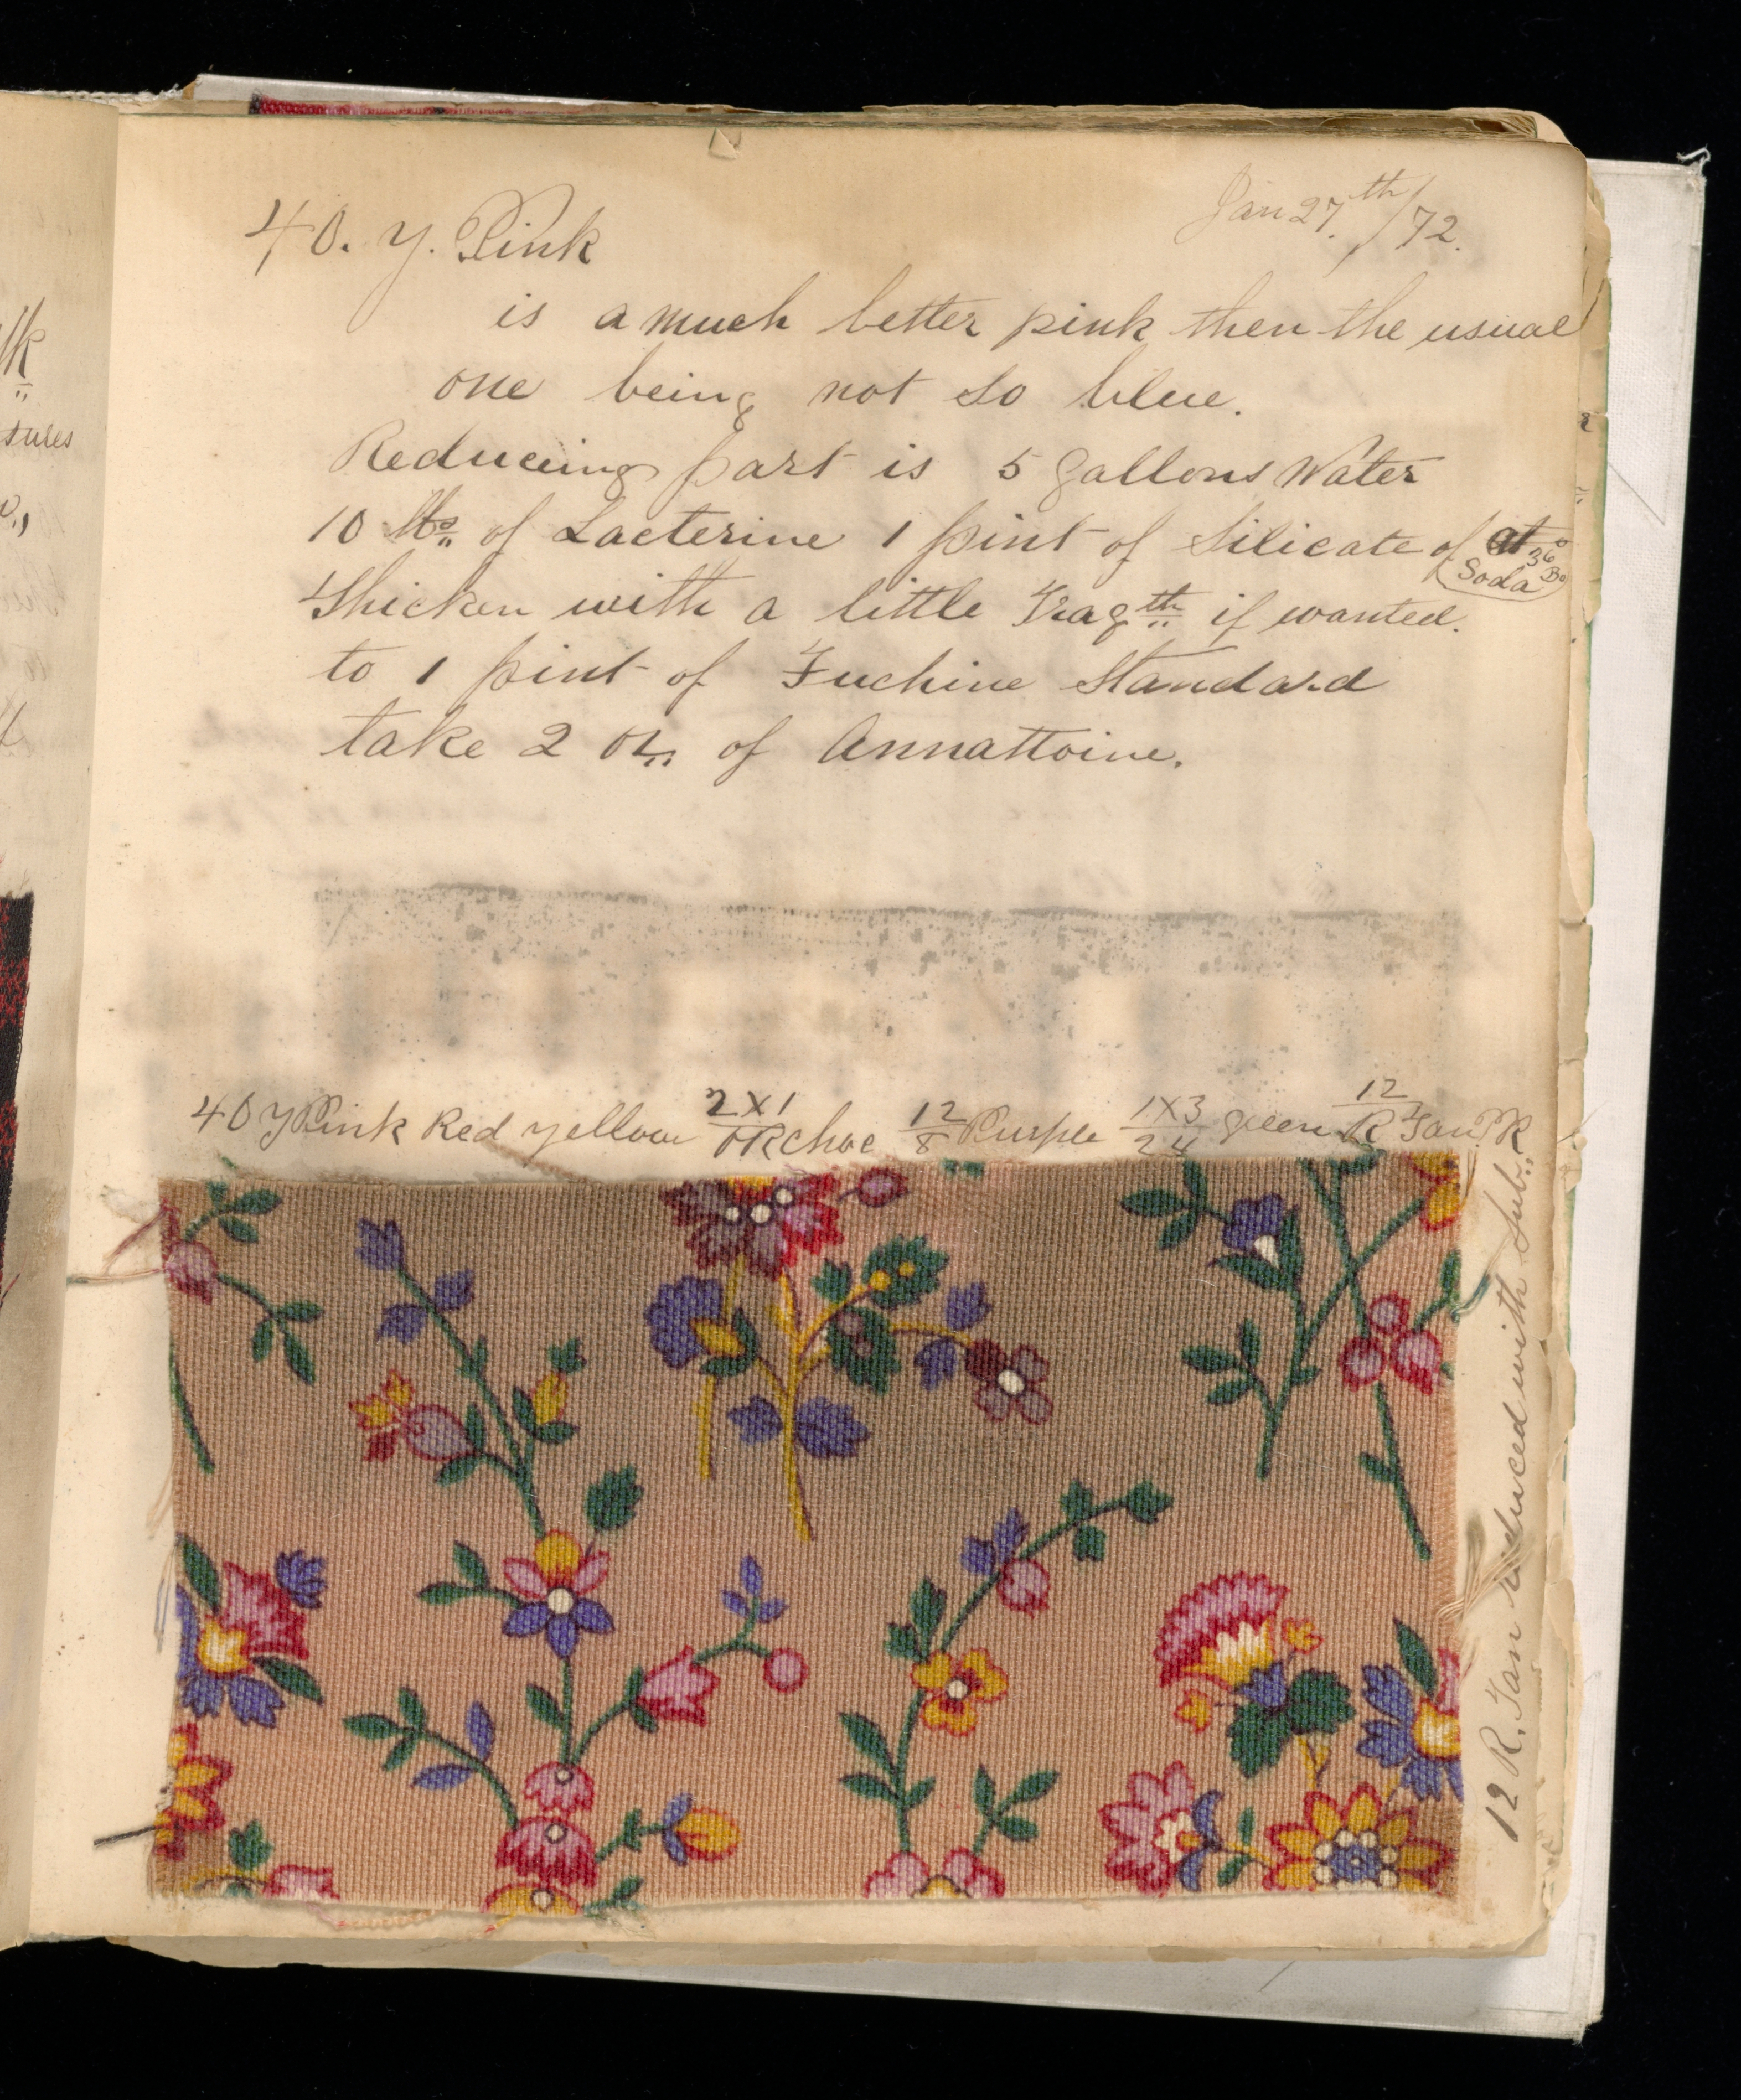 Jan 27.th/72.
40. Y. Pink
is a much better pink then the usual
one being not so blue.
Reduceing part is 5 Gallons Water
10 lbs of Lacterine 1 pint of Silicate of at 36° Be
Soda
Thicken with a little Tragth if wanted.
to 1 pint of Fuchine Standard
take 2 oz of Annattoine.
40 Y Pink Red yellow 2X1/OR choc 12/8 Purple 1X3/24 green 12/R Tan
12 R. Tan reduced with Sub.